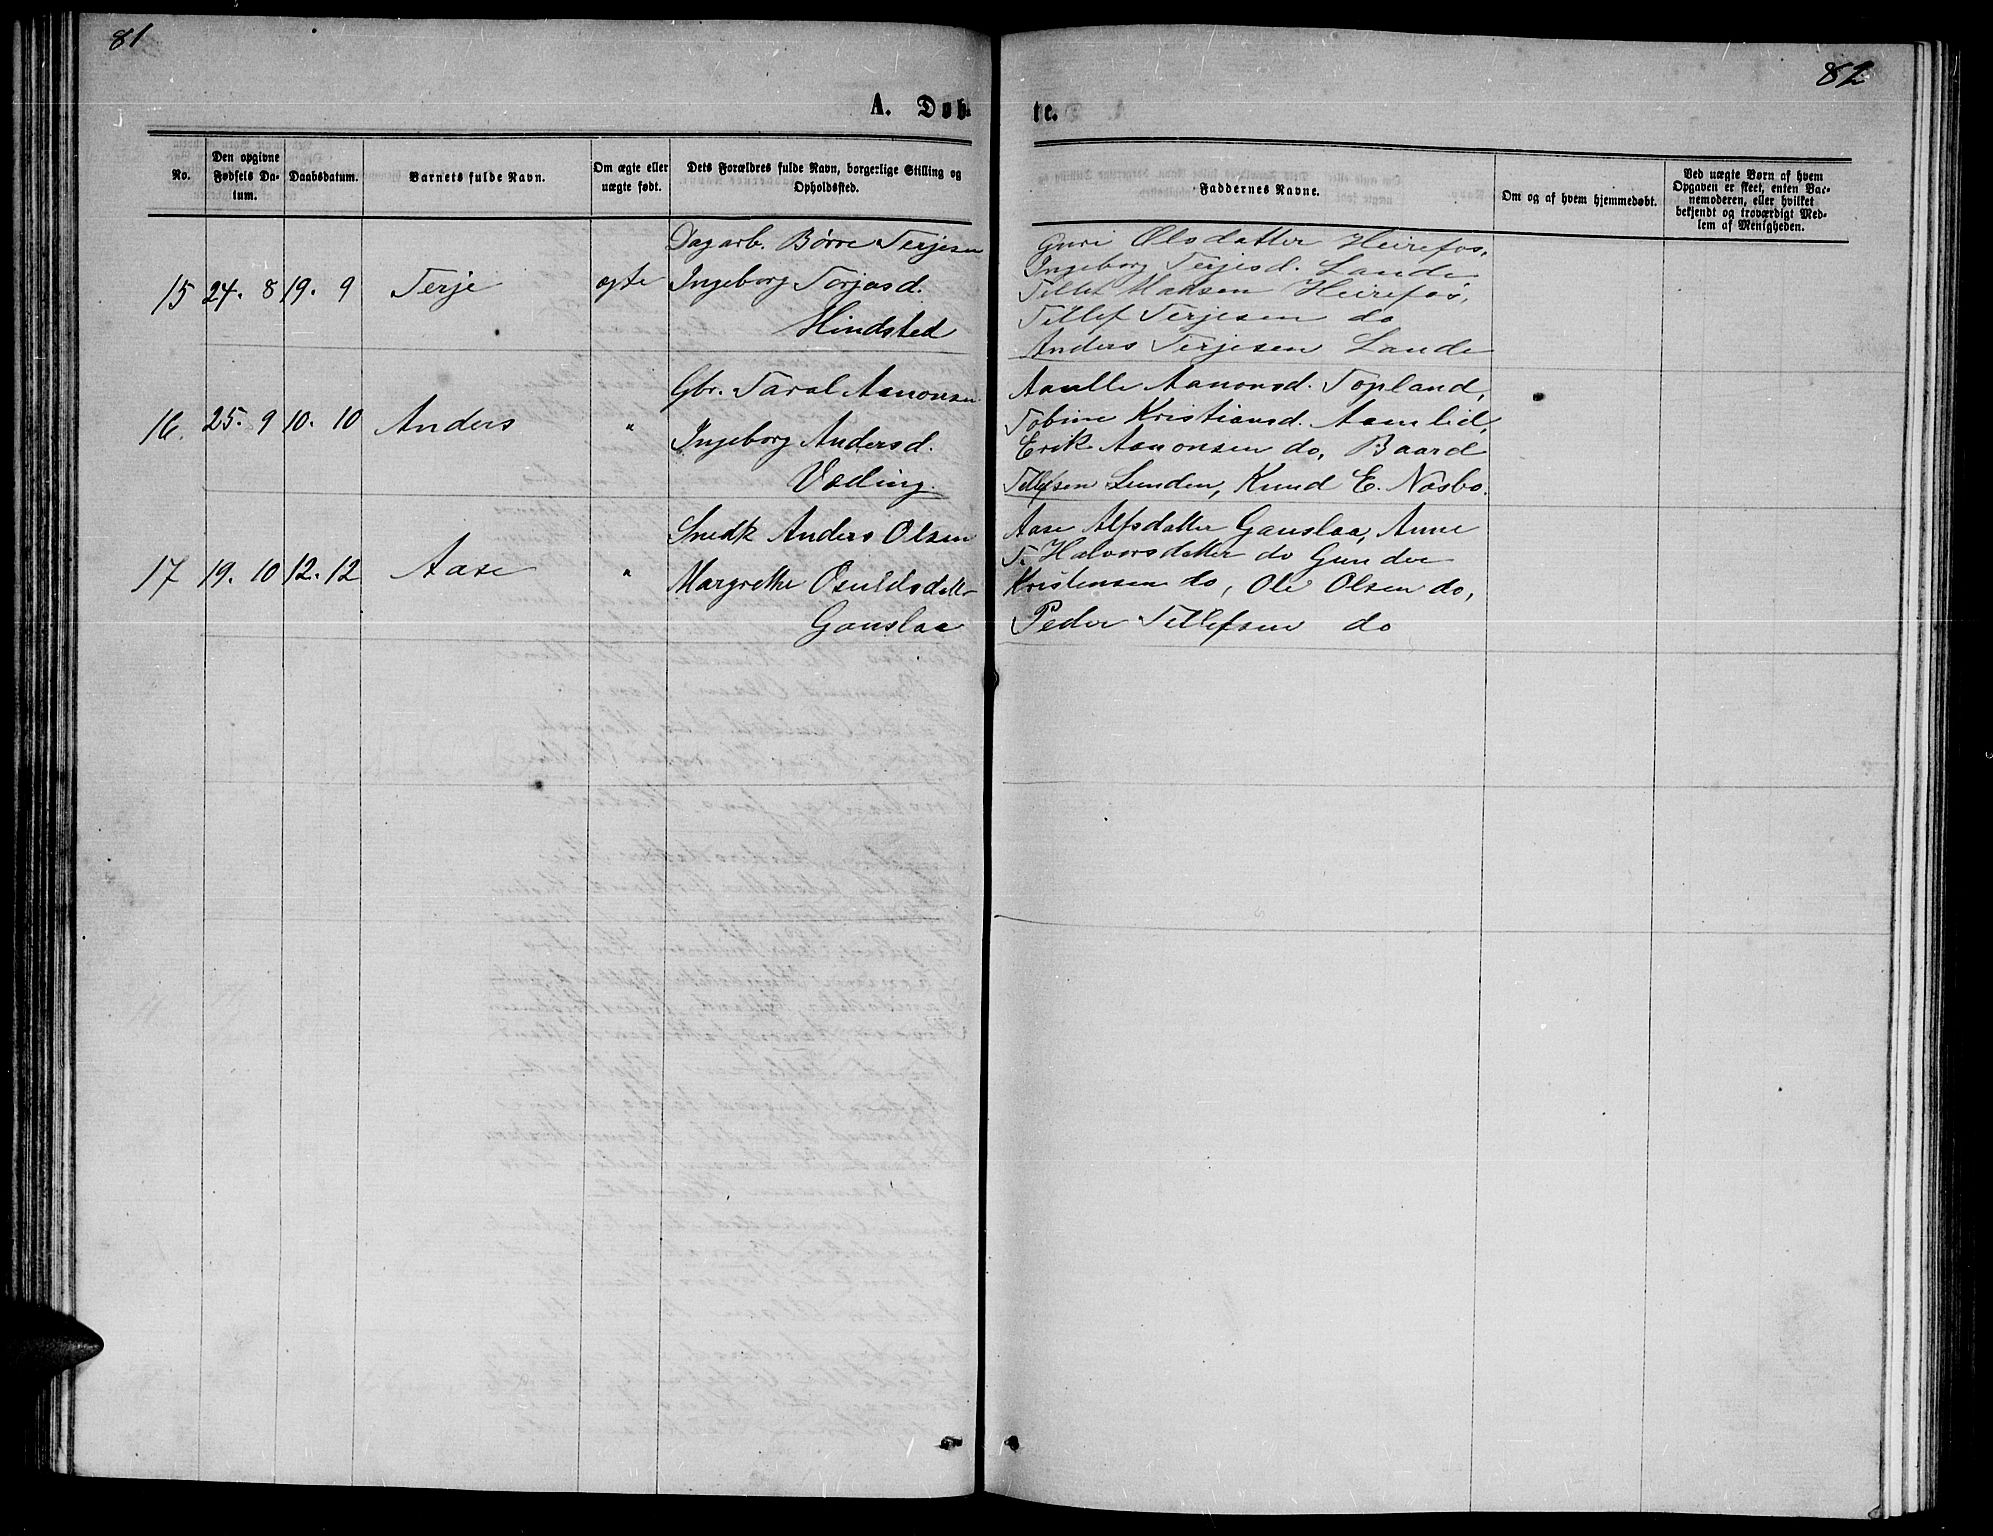 81
82
A. Døb
te.
No.
Den opgivne
Fødsels Da-
tum.
Daabsdatum.
Barnets fulde Navn.
Om ægte eller
uægte født.
Dets Forældres fulde Navn, borgerlige Stilling og
Opholdssted.
Faddernes Navne.
Om og af hvem hjemmedøbt.
Ved uægte Børn af hvem
Opgaven er skeet, enten Bar-
nemoderen, eller hvilket
bekjendt og troværdigt Med-
lem af Menigheden.
15 24. 8 19. 9 Terje ægte
Dagarb. Børre Terjesen
Ingeborg Torjasd.
Hindsted
Guri Olsdatter Heirefos,
Ingeborg Terjesd. Lande
Tellef Hansen Heirefos,
Tellef Terjesen do
Anders Terjesen Lande
16. 25. 9 10. 10 Anders "
Gbr. Taral Aanonsen
Ingeborg Andersd.
Væding.
Aanonsd. Topland,
Tobine Kristiansd. Aamlid,
Erik Aanonsen do, Baard
Tellefsen Lunden, Knud E. Næsbø.
17 19. 10 12. 12 Aase "
Snedk Anders Olsen
Margrethe Osuldsdatter
Gauslaa
Aase Alfsdatter Gauslaa, Anne
T. Halvorsdatter do Gunder
Kristensen do, Ole Olsen do,
Peder Tellefsen do